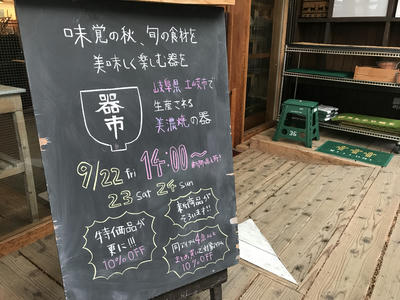 味覚の秋、旬の食材を
美味しく楽しむ器を
器市
岐阜県 土岐市で
生産される
美濃焼の器
9/22 fri 14:00〜
23 sat 24 sun
特価品が
更に!!!
10%OFF
新商品が
そろいます!!
10%OFF